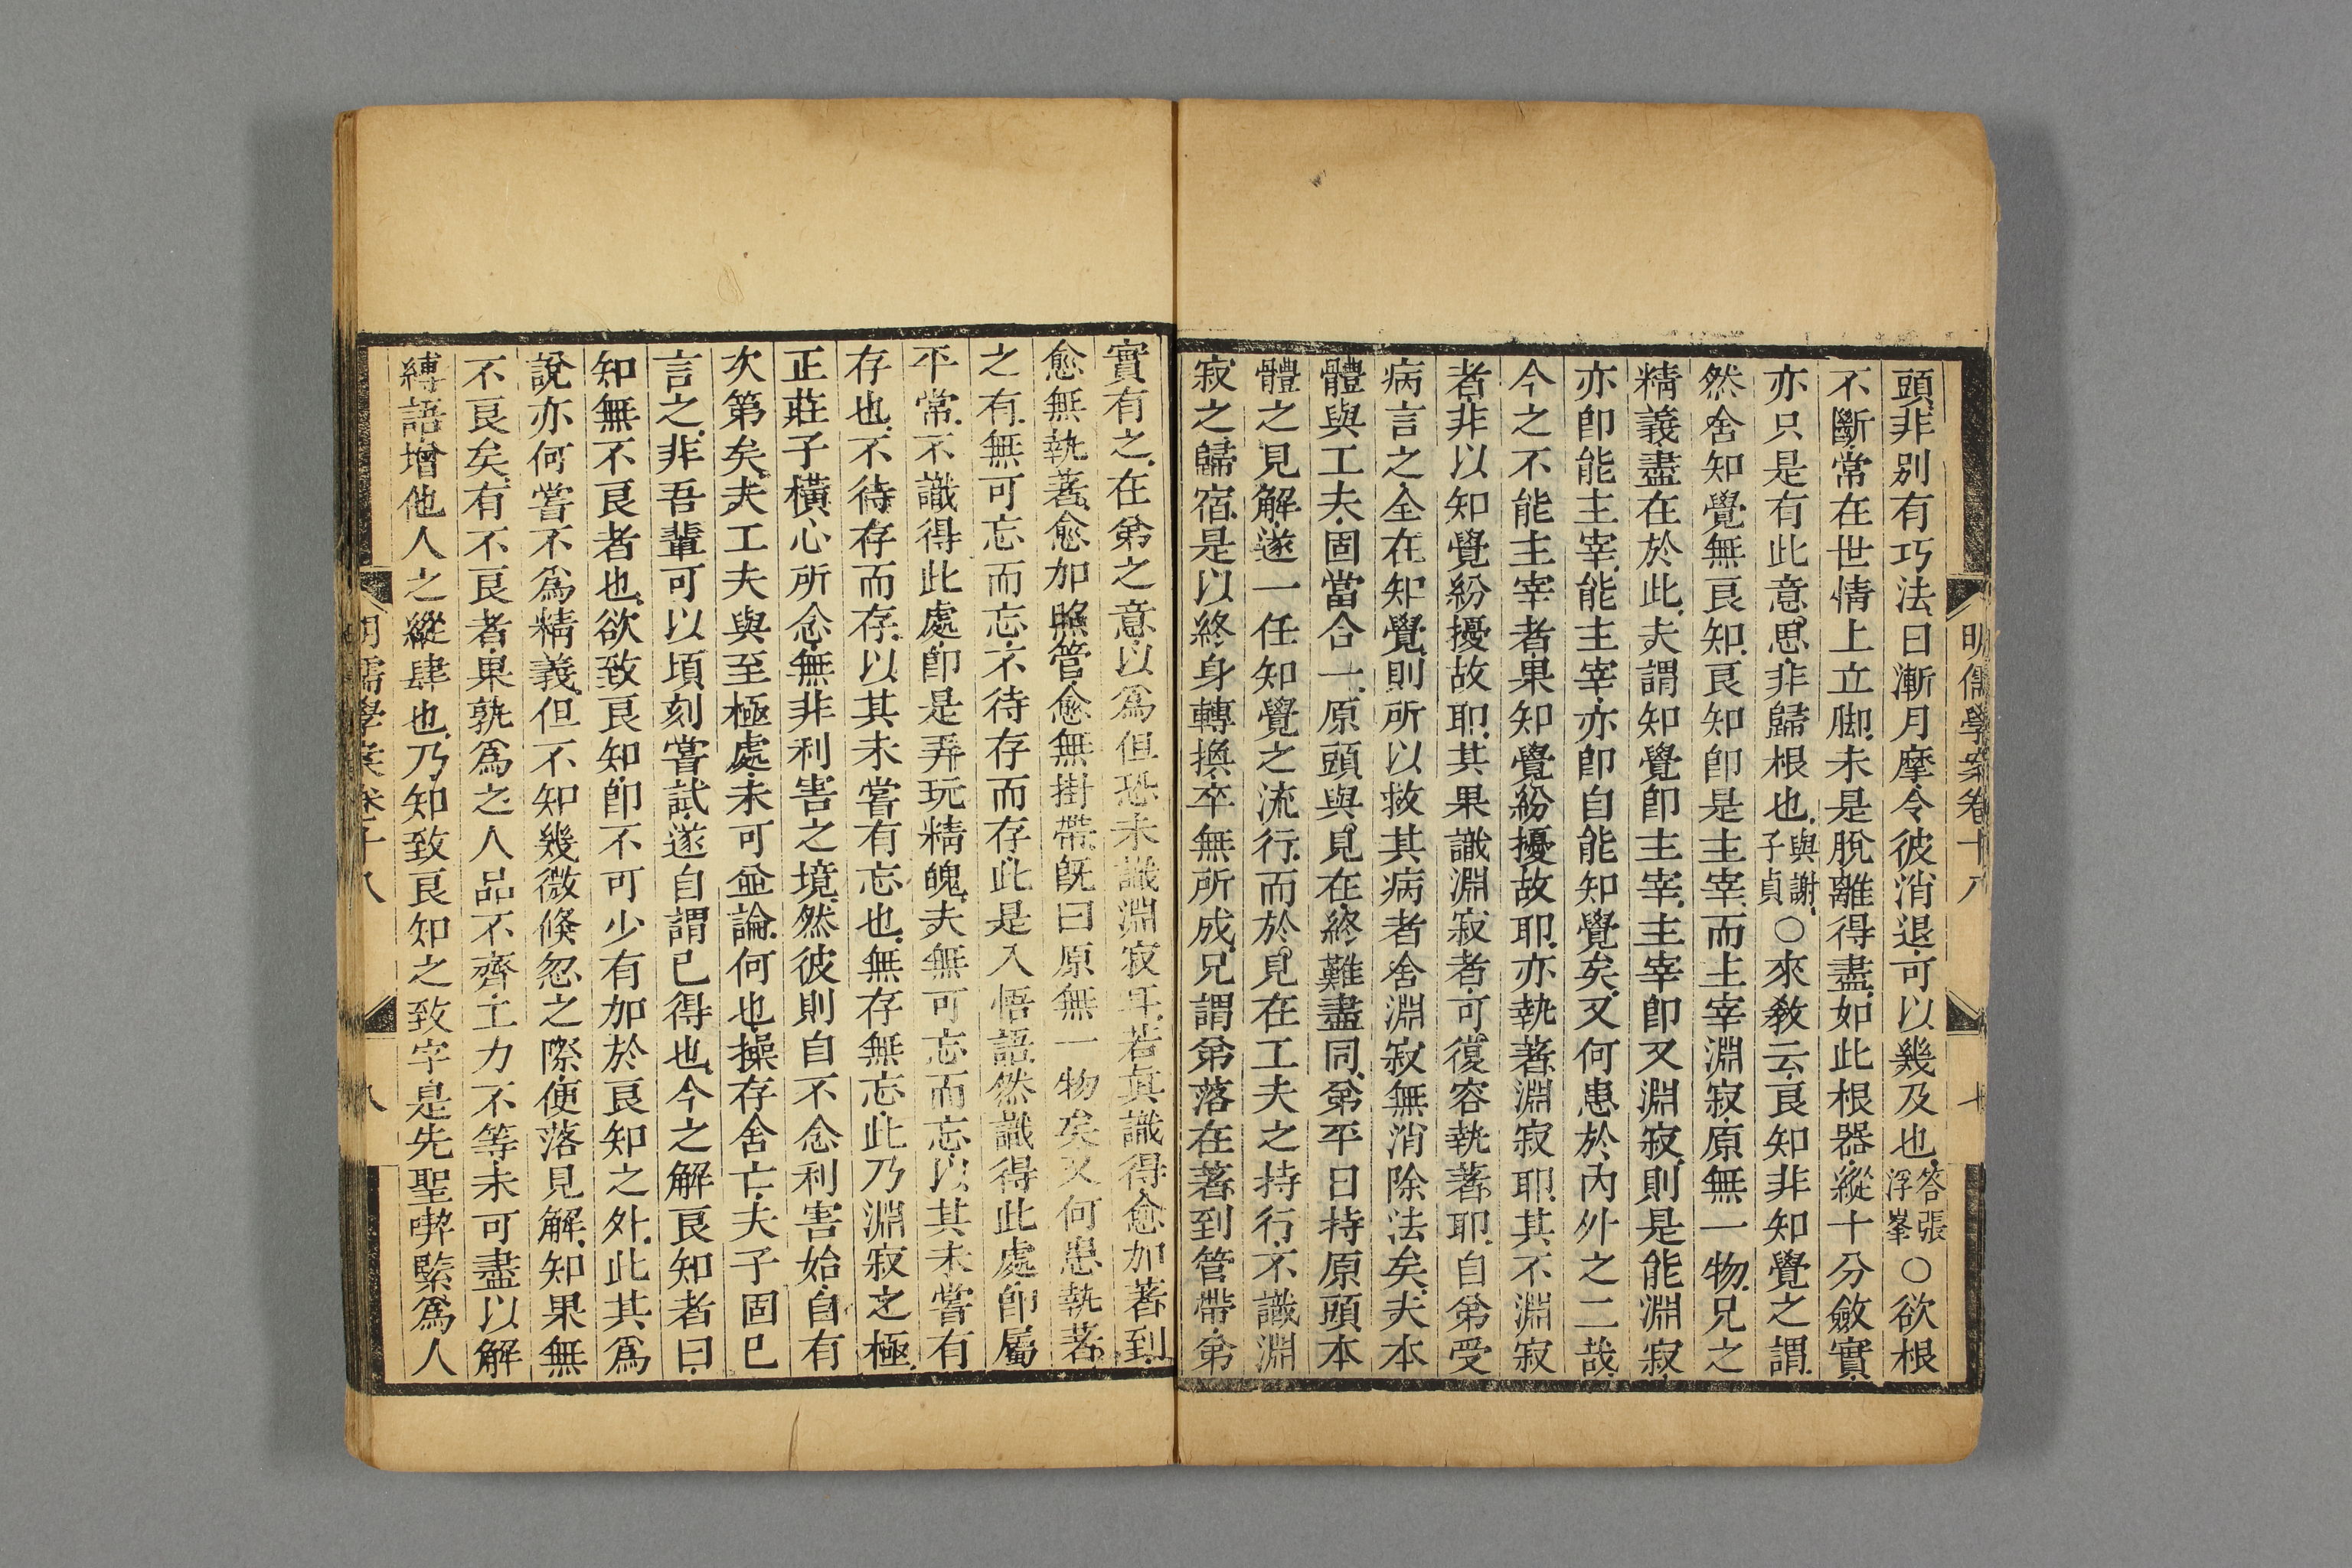 明儒學案卷十八
七
頭、非別有巧法、日漸月摩、令彼消退、可以幾及也、答張浮峯○欲根
不斷、常在世情上立脚、未是脫離得盡、如此根器、縱十分斂實、
亦只是有此意思、非歸根也、與謝子貞○來敎云、良知非知覺之謂、
然舍知覺無良知、良知卽是主宰、而主宰淵寂、原無一物、兄之
精義、盡在於此、夫謂知覺卽主宰、主宰卽又淵寂、則是能淵寂、
亦卽能主宰、能主宰、亦卽自能知覺矣、又何患於內外之二哉、
今之不能主宰者、果知覺紛擾故耶、亦執著淵寂耶、其不淵寂
者、非以知覺紛擾故耶、其果識淵寂者、可復容執著耶、自弟受
病言之、全在知覺、則所以救其病者、舍淵寂無消除法矣、夫本
體與工夫、固當合一、原頭與見在、終難盡同、弟平日持原頭本
體之見解、遂一任知覺之流行、而於見在工夫之持行、不識淵
寂之歸宿、是以終身轉換、卒無所成、兄謂弟落在著到管帶、弟
實有之、在弟之意、以爲但恐未識淵寂耳、若眞識得、愈加著到、
愈無執著、愈加照管、愈無掛帶、旣曰原無一物矣、又何患執著
之有、無可忘而忘、不待存而存、此是入悟語、然識得此處、卽屬
平常、不識得此處、卽是弄玩精魄、夫無可忘而忘、以其未嘗有
存也、不待存而存、以其未嘗有忘也、無存無忘、此乃淵寂之極、
正莊子橫心所念、無非利害之境、然彼則自不念利害始、自有
次第矣、夫工夫與至極處、未可並論、何也、操存舍亡、夫子固已
言之、非吾輩可以頃刻嘗試、遂自謂已得也、今之解良知者曰、
知無不良者也、欲致良知、卽不可少有加於良知之外、此其爲
說、亦何嘗不爲精義、但不知幾微倏忽之際、便落見解、知果無
不良矣、有不良者、果孰爲之、人品不齊、工力不等、未可盡以解
縛語、增他人之縱肆也、乃知致良知之致字、是先聖喫緊爲人
明儒學案卷十八
八